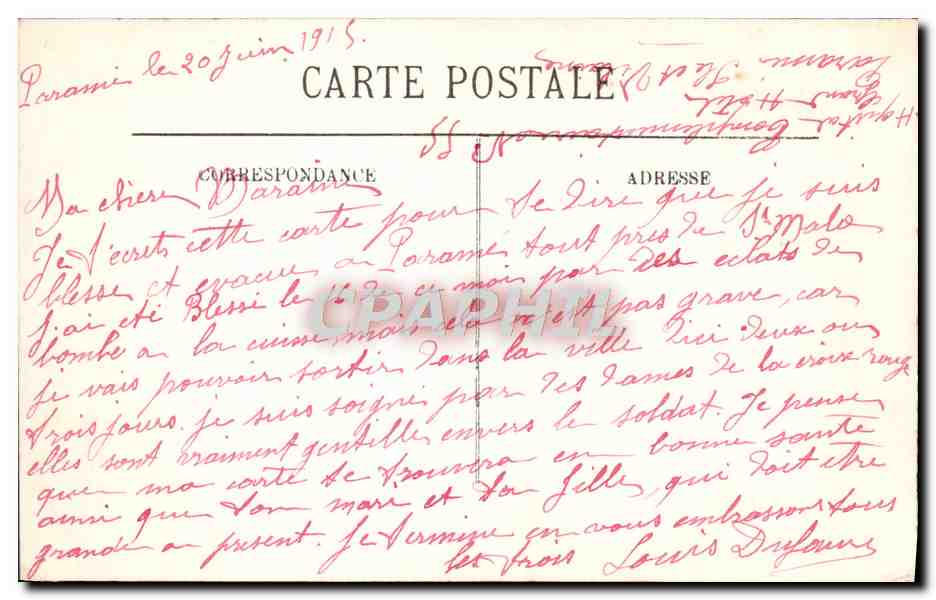 Paramé le 20 Juin 1915.
CARTE POSTALE
Hopital Complementaire N° 55
Grand Hôtel
Paramé Ile et Vilaine
CORRESPONDANCE
ADRESSE
Ma chère Maraine
Je t'écrets cette carte pour te dire que je suis
blesse et evacue a Paramé tout pres de St Malo
j'ai eté Blessé le de ce mois par des eclats de
bombe a la cuisse, mais cela n'est pas grave, car
je vais pouvoir sortir dans la ville d'ici deux ou
trois jours. je suis soigne par des dames de la croix rouge
elles sont vraiment gentilles envers le soldat. Je pense
que ma carte te trouvera en bonne sante
ainsi que ton mare et ta fille, qui doit etre
grande a present. Je termine en vous embrassons tous
les trois Louis Dufour
CPAPHIL